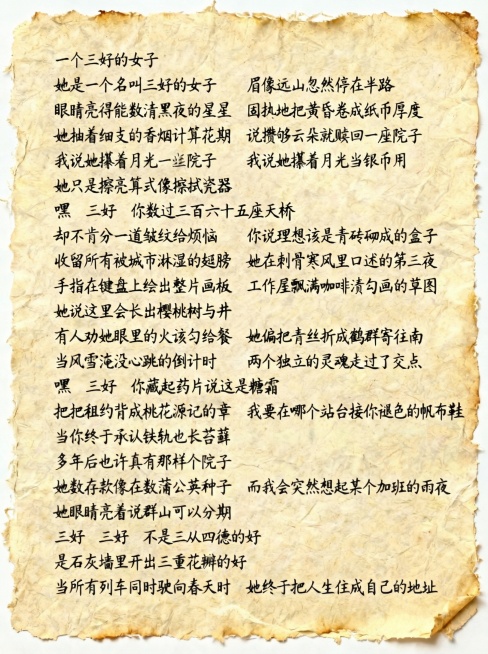 一个三好的女子
她是一个名叫三好的女子 眉像远山忽然停在半路
眼睛亮得能数清黑夜的星星 固执地把黄昏卷成纸币厚度
她抽着细支的香烟计算花期 说攒够云朵就赎回一座院子
我说她攥着月光一些院子 我说她攥着月光当银币用
她只是擦亮算式像擦拭瓷器
嘿 三好 你数过三百六十五座天桥
却不肯分一道皱纹给烦恼 你说理想该是青砖砌成的盒子
收留所有被城市淋湿的翅膀 她在刺骨寒风里口述的第三夜
手指在键盘上绘出整片画板 工作屋飘满咖啡渍勾画的草图
她说这里会长出樱桃树与井
有人劝她眼里的火该匀给餐 她偏把青丝折成鹤群寄往南
当风雪淹没心跳的倒计时 两个独立的灵魂走过了交点
嘿 三好 你藏起药片说这是糖霜
把把租约背成桃花源记的章 我要在哪个站台接你褪色的帆布鞋
当你终于承认铁轨也长苔藓
多年后也许真有那样个院子
她数存款像在数蒲公英种子 而我会突然想起某个加班的雨夜
她眼睛亮着说群山可以分期
三好 三好 不是三从四德的好
是石灰墙里开出三重花瓣的好
当所有列车同时驶向春天时 她终于把人生住成自己的地址